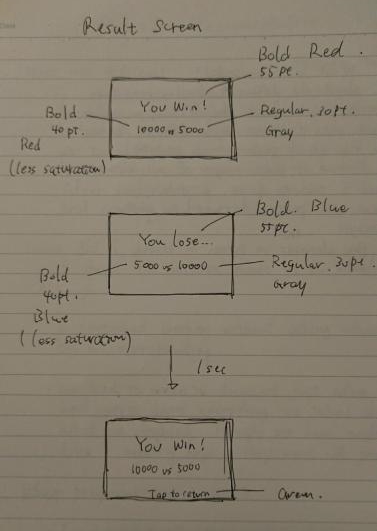 Result Screen
Bold Red.
55 pt.
You Win!
10000 vs 5000
Bold
40 pt.
Red
(less saturation)
Regular. 30pt.
Gray
Bold. Blue
55pt.
You lose...
5000 vs 10000
Bold
40pt.
Blue
(less saturation)
Regular. 30pt.
Gray
1 sec
You Win!
10000 vs 5000
Tap to return
Green.